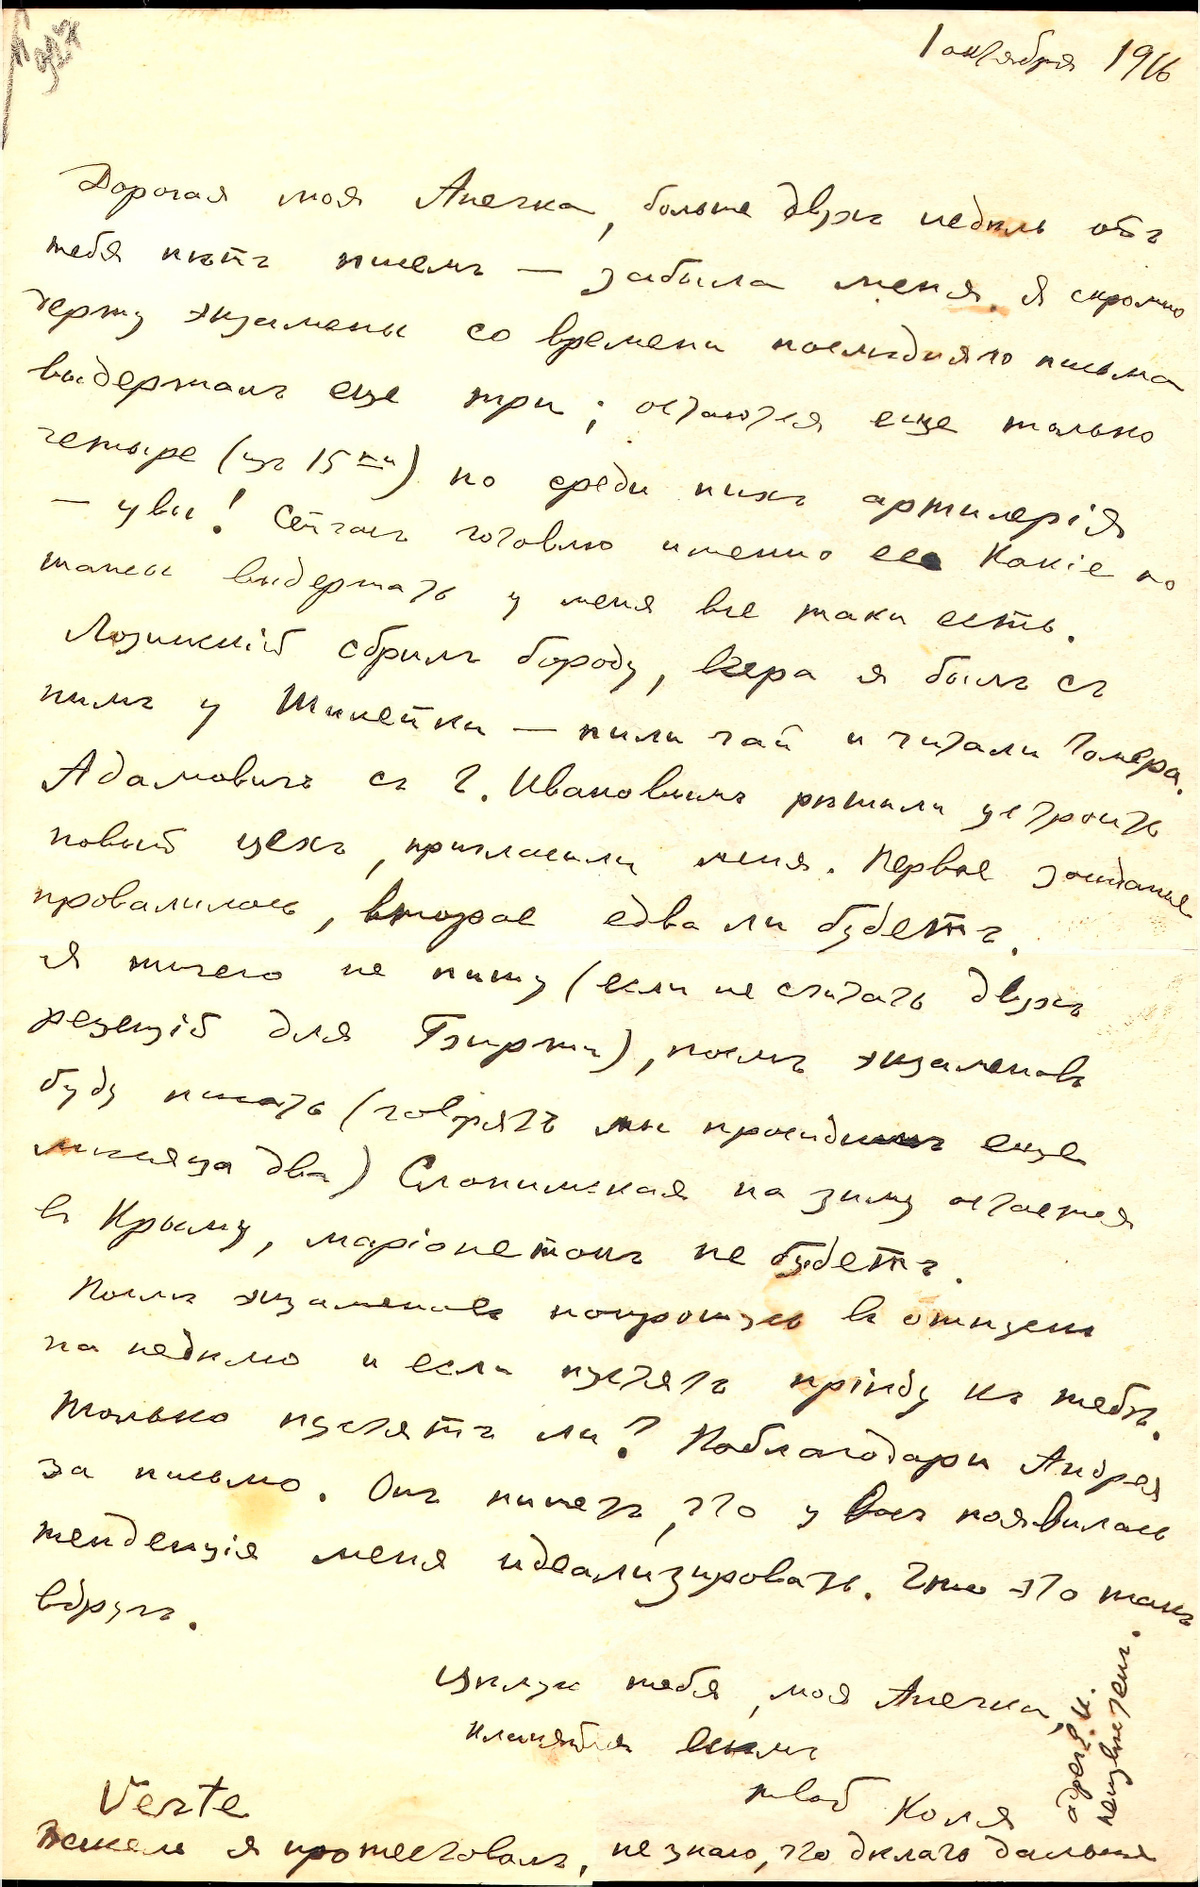 1 октября 1916
Дорогая моя Анечка, больше двухъ недѣль отъ
тебя нѣтъ писемъ — забыла меня. Я скромно
держу экзамены со времени послѣдняго письма
выдержалъ еще три; остаются еще только
четыре (изъ 15ти) но среди нихъ артилерія
— увы! Сейчасъ готовлю именно ее. Какіе то
шансы выдержать у меня все таки есть.
Лозинскій сбрилъ бороду, вчера я былъ съ
нимъ у Шилейки — пили чай и читали Гомера.
Адамовичъ съ Г. Ивановымъ рѣшили устроить
новый цехъ, пригласили меня. Первое засѣданье
провалилось, второе едва ли будетъ.
Я ничего не пишу (если не считать двухъ
рецензій для Биржи), послѣ экзаменовъ
буду писать (говорятъ мы просидимъ еще
мѣсяца два) Слонимская на зиму остается
въ Крыму, маріонетокъ не будетъ.
Послѣ экзаменовъ попрошусь въ отпускъ
на недѣлю и если пустятъ пріѣду къ тебѣ.
Только пустятъ ли? Поблагодари Андрея
за письмо. Онъ пишетъ, что у васъ появилась
тенденція меня идеализировать. Что это такъ
вдругъ.
Цѣлую тебя, моя Анечка,
кланяйся всѣмъ
твой Коля
Verte
я протестовалъ, не знаю, что дѣлать дальше
адресъ
неизвѣстенъ.